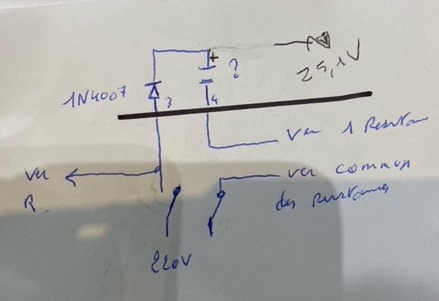 +
?
25,1V
1N4007
3
4
ver 1 Resistan
ver
R
ver commun
des resistances
220V